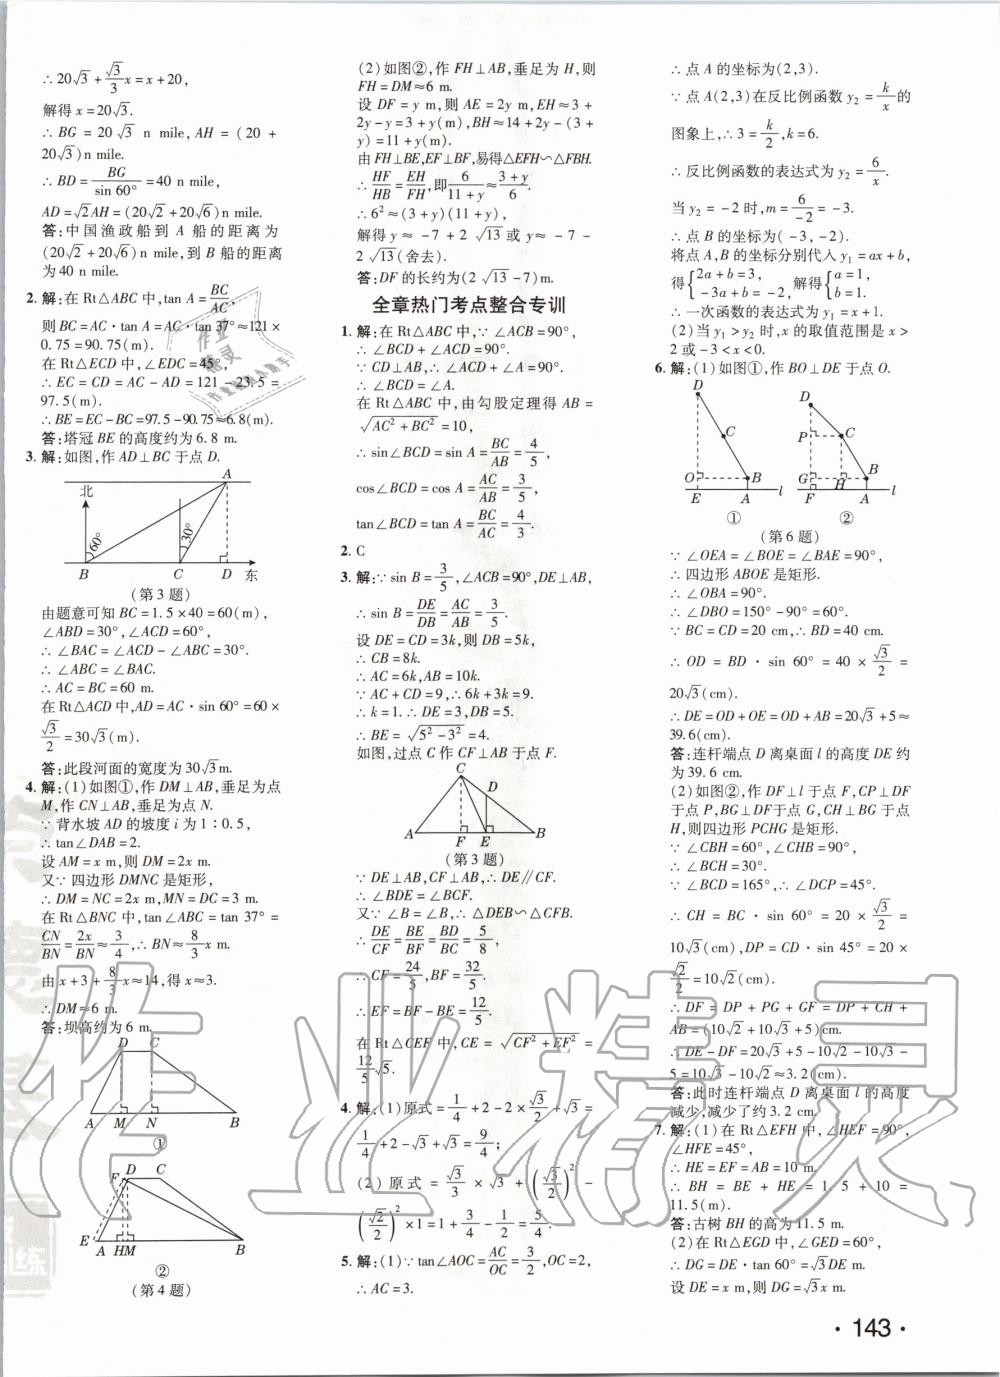 ∴20√3+√3/3x=x+20,
解得x=20√3.
∴BG=20√3 n mile,AH=(20+
20√3)n mile.
∴BD=BG/sin 60°=40 n mile,
AD=√2AH=(20√2+20√6)n mile.
答:中国渔政船到A船的距离为
(20√2+20√6)n mile,到B船的距离
为40 n mile.
2.解:在Rt△ABC中,tan A=BC/AC,
则BC=AC·tan A=AC·tan 37°≈121×
0.75=90.75(m).
在Rt△ECD中,∠EDC=45°,
∴EC=CD=AC-AD=121-23.5=
97.5(m).
∴BE=EC-BC=97.5-90.75≈6.8(m).
答:塔冠BE的高度约为6.8 m.
3.解:如图,作AD⊥BC于点D.
北 A 60° 30° B C D 东
(第3题)
由题意可知BC=1.5×40=60(m),
∠ABD=30°,∠ACD=60°,
∴∠BAC=∠ACD-∠ABC=30°.
∴∠BAC=∠ABC.
∴AC=BC=60 m.
在Rt△ACD中,AD=AC·sin 60°=60×
√3/2=30√3(m).
答:此段河面的宽度为30√3m.
4.解:(1)如图①,作DM⊥AB,垂足为点
M,作CN⊥AB,垂足为点N.
∵背水坡AD的坡度i为1∶0.5,
∴tan∠DAB=2.
设AM=x m,则DM=2x m.
又∵四边形DMNC是矩形,
∴DM=NC=2x m,MN=DC=3 m.
在Rt△BNC中,tan∠ABC=tan 37°=
CN/BN=2x/BN≈3/4,∴BN≈8/3x m.
由x+3+8/3x≈14,得x≈3.
∴DM≈6 m.
答:坝高约为6 m.
D C A M N B
①
F D C E A H M B
②
(第4题)
(2)如图②,作FH⊥AB,垂足为H,则
FH=DM≈6 m.
设DF=y m,则AE=2y m,EH≈3+
2y-y=3+y(m),BH≈14+2y-(3+
y)=11+y(m).
由FH⊥BE,EF⊥BF,易得△EFH∽△FBH.
∴HF/HB=EH/FH,即6/11+y≈3+y/6.
∴6²≈(3+y)(11+y),
解得y≈-7+2√13或y≈-7-
2√13(舍去).
答:DF的长约为(2√13-7)m.
全章热门考点整合专训
1.解:在Rt△ABC中,∵∠ACB=90°,
∴∠BCD+∠ACD=90°.
∵CD⊥AB,∴∠ACD+∠A=90°.
∴∠BCD=∠A.
在Rt△ABC中,由勾股定理得AB=
√AC²+BC²=10,
∴sin∠BCD=sin A=BC/AB=4/5,
cos∠BCD=cos A=AC/AB=3/5,
tan∠BCD=tan A=BC/AC=4/3.
2.C
3.解:∵sin B=3/5,∠ACB=90°,DE⊥AB,
∴sin B=DE/DB=AC/AB=3/5.
设DE=CD=3k,则DB=5k.
∴CB=8k.
∴AC=6k,AB=10k.
∵AC+CD=9,∴6k+3k=9.
∴k=1.∴DE=3,DB=5.
∴BE=√5²-3²=4.
如图,过点C作CF⊥AB于点F.
C D A F E B
(第3题)
∵DE⊥AB,CF⊥AB,∴DE∥CF.
∴∠BDE=∠BCF.
又∵∠B=∠B,∴△DEB∽△CFB.
∴DE/CF=BE/BF=BD/BC=5/8,
∴CF=24/5,BF=32/5.
∴EF=BF-BE=12/5.
在Rt△CEF中,CE=√CF²+EF²=
12/5√5.
4.解:(1)原式=1/4+2-2×√3/2+√3=
1/4+2-√3+√3=9/4;
(2)原式=√3/3×√3+(√3/2)²-
(√2/2)²×1=1+3/4-1/2=5/4.
5.解:(1)∵tan∠AOC=AC/OC=3/2,OC=2,
∴AC=3.
∴点A的坐标为(2,3).
∵点A(2,3)在反比例函数y₂=k/x的
图象上,∴3=k/2,k=6.
∴反比例函数的表达式为y₂=6/x.
当y₂=-2时,m=6/-2=-3.
∴点B的坐标为(-3,-2).
将点A,B的坐标分别代入y₁=ax+b,
得{2a+b=3, -3a+b=-2, 解得{a=1, b=1.
∴一次函数的表达式为y₁=x+1.
(2)当y₁>y₂时,x的取值范围是x>
2或-3<x<0.
6.解:(1)如图①,作BO⊥DE于点O.
D C O B E A l
①
D P C G B F H A l
②
(第6题)
∵∠OEA=∠BOE=∠BAE=90°,
∴四边形ABOE是矩形.
∴∠OBA=90°.
∴∠DBO=150°-90°=60°.
∵BC=CD=20 cm,∴BD=40 cm.
∴OD=BD·sin 60°=40×√3/2=
20√3(cm).
∴DE=OD+OE=OD+AB=20√3+5≈
39.6(cm).
答:连杆端点D离桌面l的高度DE约
为39.6 cm.
(2)如图②,作DF⊥l于点F,CP⊥DF
于点P,BG⊥DF于点G,CH⊥BG于点
H,则四边形PCHG是矩形.
∵∠CBH=60°,∠CHB=90°,
∴∠BCH=30°.
∵∠BCD=165°,∴∠DCP=45°.
∴CH=BC·sin 60°=20×√3/2=
10√3(cm),DP=CD·sin 45°=20×
√2/2=10√2(cm).
∴DF=DP+PG+GF=DP+CH+
AB=(10√2+10√3+5)cm.
∴DE-DF=20√3+5-10√2-10√3-
5=10√3-10√2≈3.2(cm).
答:此时连杆端点D离桌面l的高度
减少,减少了约3.2 cm.
7.解:(1)在Rt△EFH中,∠HEF=90°,
∠HFE=45°,
∴HE=EF=AB=10 m.
∴BH=BE+HE=1.5+10=
11.5(m).
答:古树BH的高为11.5 m.
(2)在Rt△EGD中,∠GED=60°,
∴DG=DE·tan 60°=√3DE m.
设DE=x m,则DG=√3x m.
·143·
作业精灵